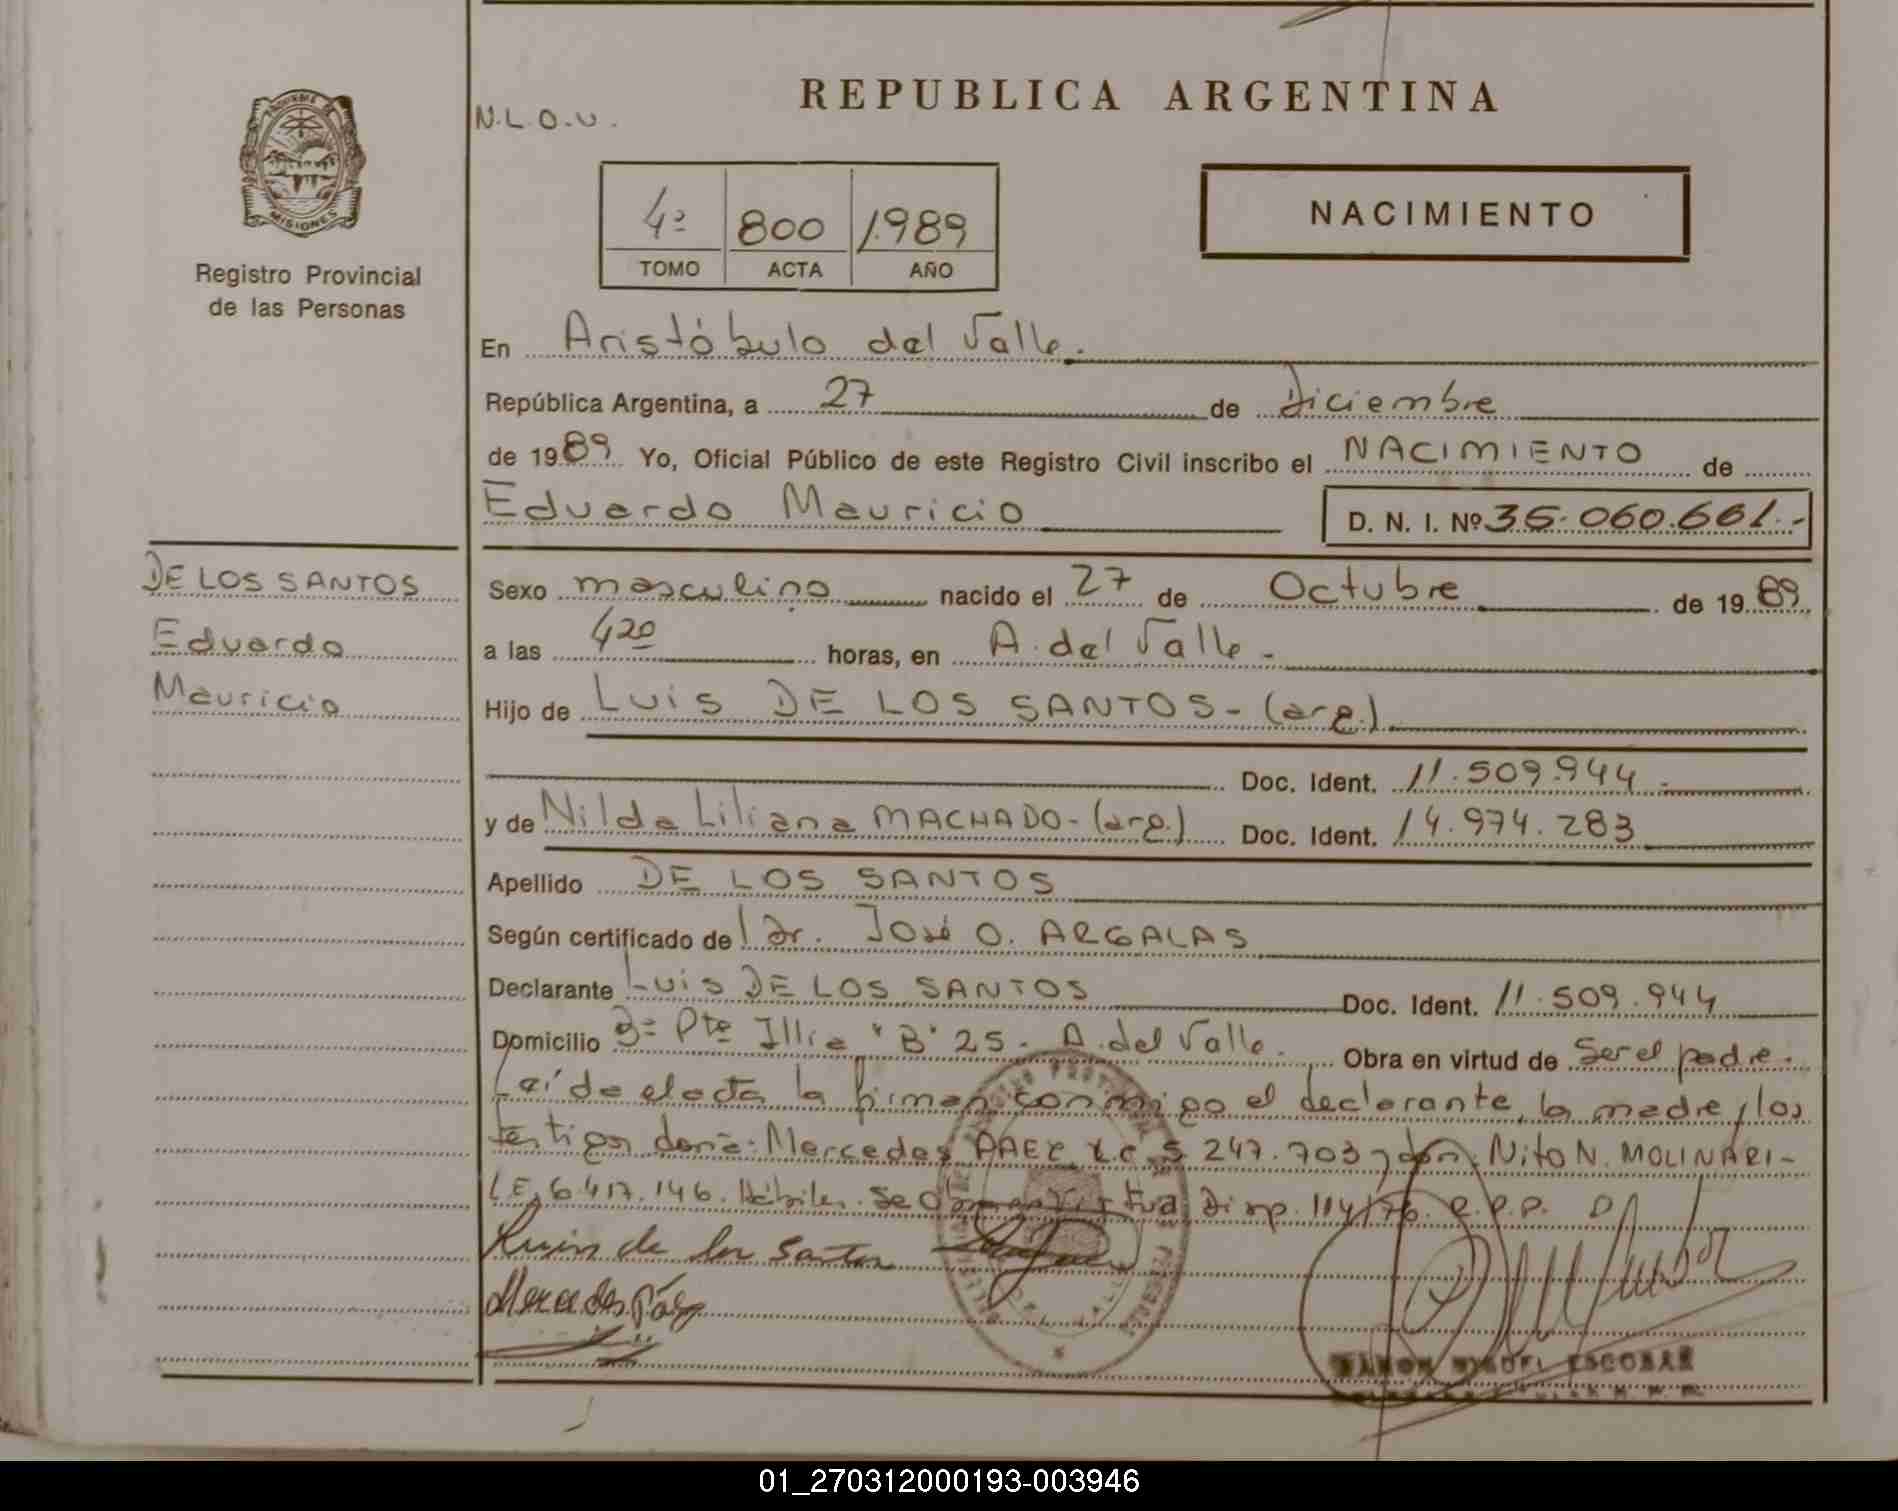 REPUBLICA ARGENTINA
N.L.O.U.
MISIONES
Registro Provincial
de las Personas
4º 800 1.989
TOMO ACTA AÑO
NACIMIENTO
En Aristóbulo del Valle.
República Argentina, a 27 de Diciembre
de 1989 Yo, Oficial Público de este Registro Civil inscribo el NACIMIENTO de
Eduardo Mauricio D. N. I. Nº 35.060.661.-
DE LOS SANTOS
Eduardo
Mauricio
Sexo masculino nacido el 27 de Octubre de 1989
a las 4 20 horas, en A. del Valle -
Hijo de Luis DE LOS SANTOS - (arg.)
Doc. Ident. 11.509.944 -
y de Nilda Liliana MACHADO - (arg.) Doc. Ident. 14.974.283
Apellido DE LOS SANTOS
Según certificado del Dr. José O. ARGALAS
Declarante Luis DE LOS SANTOS Doc. Ident. 11.509.944
Domicilio Bº Pte Illia "B" 25 - A. del Valle. Obra en virtud de Ser el padre.
Leída el acta la firman conmigo el declarante, la madre y los
testigos doña: Mercedes PAEZ L.C. 5 247.703 y don Nito N. MOLINARI -
L.E. 6.417.146. Hábiles. Se Disp. 114/76. R.P.P.
Luis de los Santos
Mercedes Páez
RAMON MIGUEL ESCOBAR
01_270312000193-003946